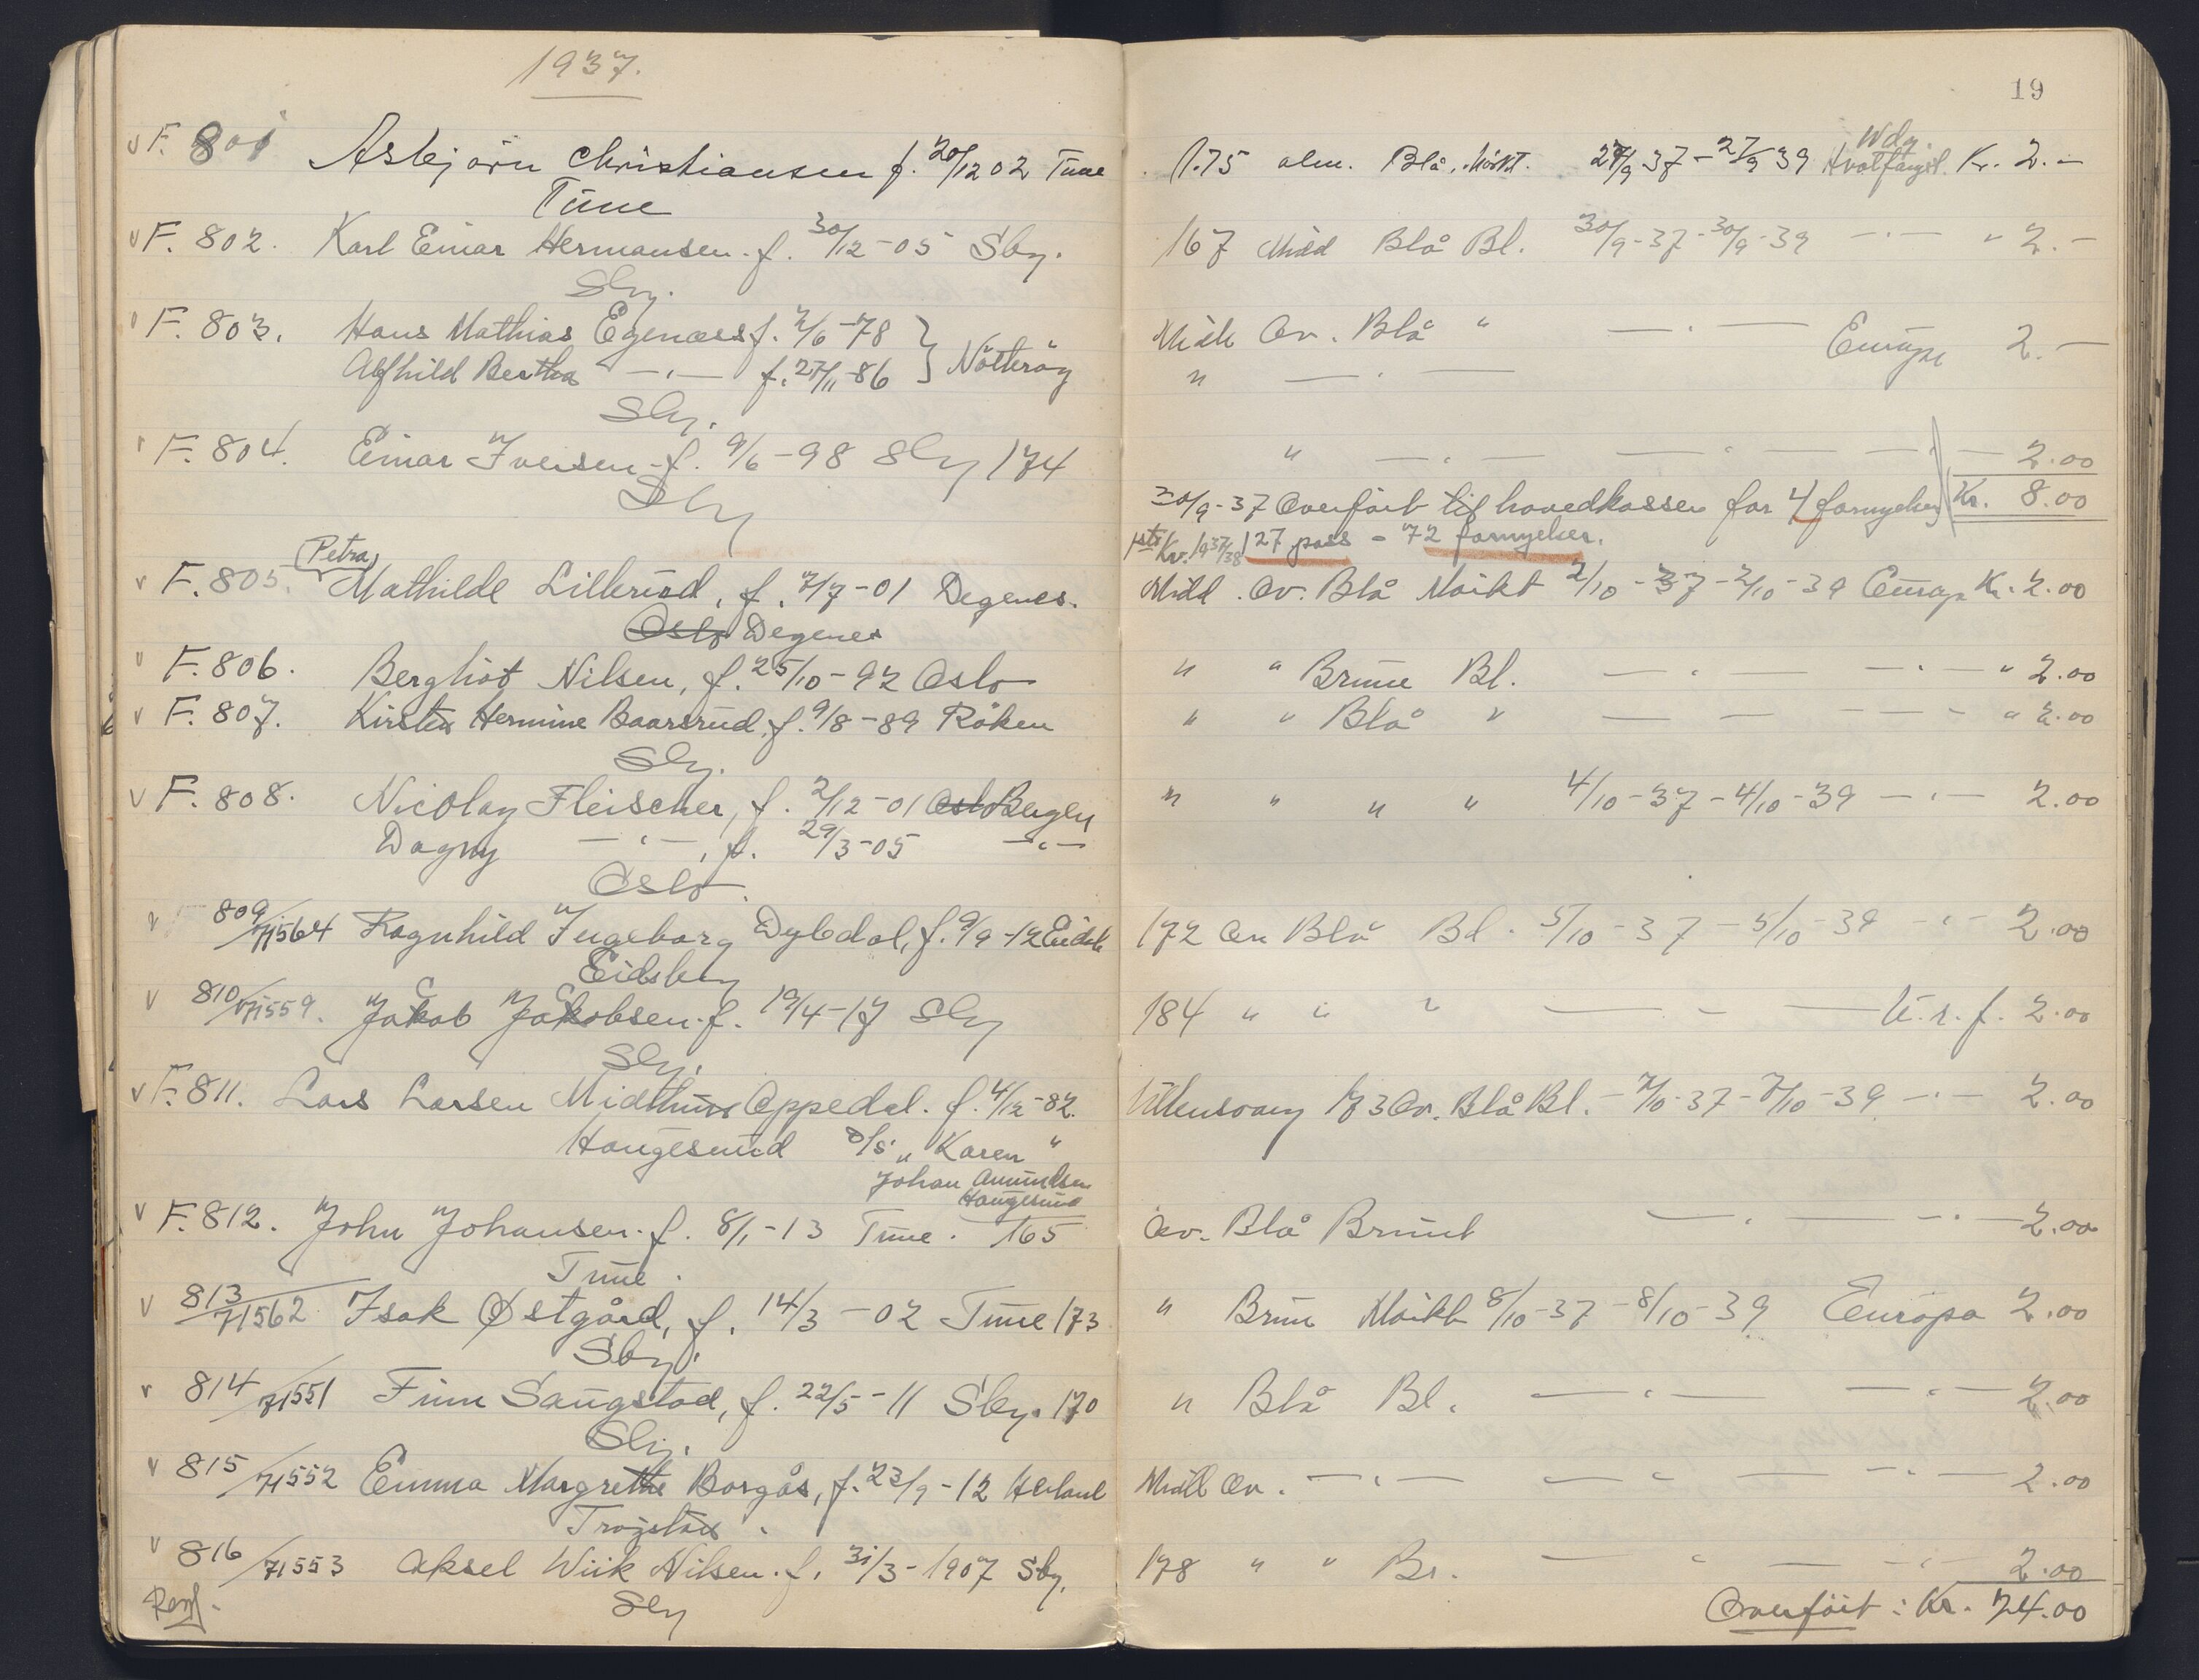 1937.
19
v F. 801 Asbjørn Christiansen f. 20/12 02 Tune 1.75 alm. Blå. Mörkt. 27/9 37 - 27/9 39 Kr. 2.-
Tune
v F. 802. Karl Einar Hermansen. f. 30/12 - 05 Sbg. 167 Midd Blå Bl. 30/9 - 37 - 30/9 - 39 — " 2.-
Sbg.
v F. 803. Hans Mathias Egenæss f. 2/6 - 78 } Midd Ov. Blå " — . — Europa 2.-
Alfhild Bertha — " — f. 27/11 - 86 } Nötteröy " — . —
Sbg.
v F. 804. Einar Iversen - f. 9/6 - 98 Sbg 174 " — . — — . — 2.00
Sbg
30/9 - 37 Overfört til hovedkassen for 4 fornyelser Kr. 8.00
1ste Kv. 1937/38 127 pass - 72 fornyelser.
v F. 805. (Petra) Mathilde Lillerud, f. 7/7 - 01 Degenes. Midd. Ov. Blå Mörkt 2/10 - 37 - 2/10 - 39 Europa Kr. 2.00
Oslo Degenes
v F. 806. Bergliot Nilsen, f. 25/10 - 92 Oslo " " Brune Bl. — . — — . — " 2.00
v F. 807. Kirsten Hermine Baarsrud, f. 9/8 - 89 Röken " " Blå " — — — " 2.00
Sbg.
v F. 808. Nicolay Fleischer, f. 2/12 - 01 Oslo Bergen " " " " 4/10 - 37 - 4/10 - 39 — . — 2.00
Dagny — . — , f. 29/3 - 05 — . —
Oslo
v 809/71564 Ragnhild Ingeborg Dybdal, f. 9/9 - 12 172 Ov Blå Bl. 5/10 - 37 - 5/10 - 39 — . — 2.00
Eidsberg
v 810/71559. Jakob Jakobsen. f. 19/4 - 17 Sbg 184 " " " — — — 2.00
Sbg.
v F. 811. Lars Larsen Midthus Oppedal. f. 4/12 - 82. Ullensvang 173 Ov. Blå Bl. - 7/10 - 37 - 7/10 - 39 — . — 2.00
Haugesund D/S „ Karen "
Johan Amundsen
Haugesund
v F. 812. John Johansen. f. 8/1 - 13 Tune. 165 Ov. Blå Brunt — . — — . — 2.00
Tune.
v 813/71562 Isak Østgård, f. 14/3 - 02 Tune 173 " Brun Mörkt 8/10 - 37 - 8/10 - 39 Europa 2.00
Sbg.
v 814/71551 Finn Saugstad, f. 22/5 - 11 Sbg. 170 " Blå Bl. — . — — . — 2.00
Sbg.
v 815/71552 Emma Margrethe Borgås, f. 23/9 - 12 Midd Ov. — . — — . — — . — 2.00
Trøgstad.
v 816/71553 Aksel Wiik Nilsen. f. 31/3 - 1907 Sbg. 178 " " Br. — . — — . — 2.00
Sbg
Overfört: Kr. 24.00